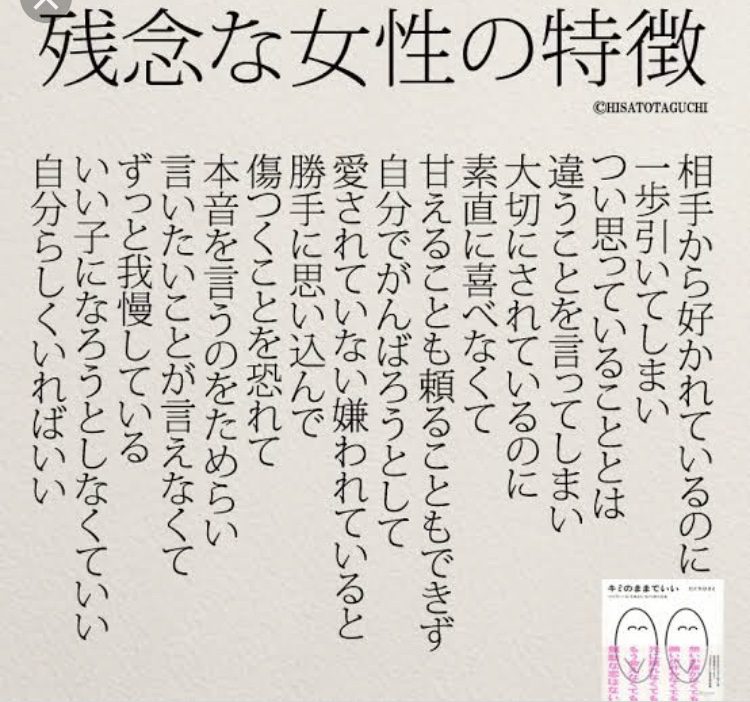 残念な女性の特徴
©HISATOTAGUCHI
相手から好かれているのに
一歩引いてしまい
つい思っていることとは
違うことを言ってしまい
大切にされているのに
素直に喜べなくて
甘えることも頼ることもできず
自分でがんばろうとして
愛されていない嫌われていると
勝手に思い込んで
傷つくことを恐れて
本音を言うのをためらい
言いたいことが言えなくて
ずっと我慢している
いい子になろうとしなくていい
自分らしくいればいい
キミのままでいい